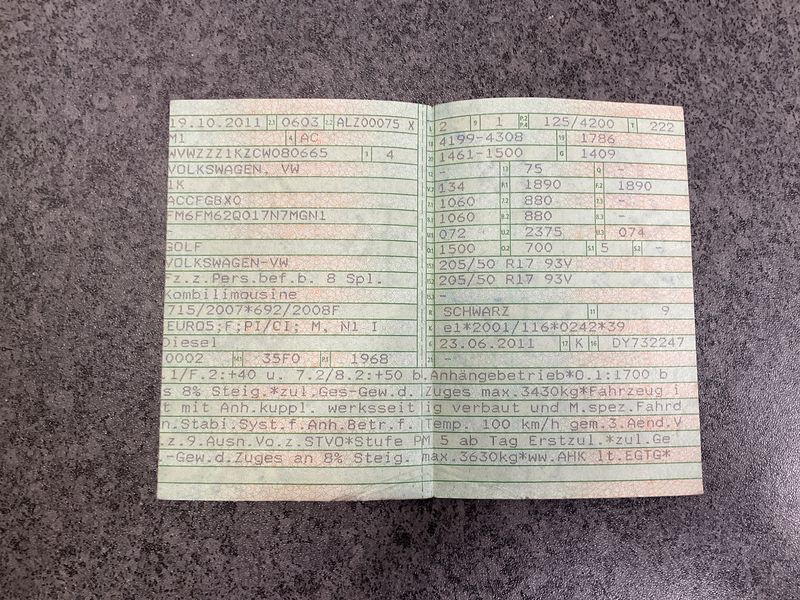 19.10.2011 2.1 0603 2.2 ALZ00075 X
M1 4 AC
WVWZZZ1KZCW080665 3 4
VOLKSWAGEN, VW
1K
ACCFGBX0
FM6FM62Q017N7MGN1
-
GOLF
VOLKSWAGEN-VW
Fz.z.Pers.bef.b. 8 Spl.
Kombilimousine
715/2007*692/2008F
EURO5;F;PI/CI; M, N1 I
Diesel
0002 14.1 35F0 P.1 1968
L 2 9 1 P.2 P.4 125/4200 T 222
18 4199-4308 19 1786
20 1461-1500 G 1409
12 - 13 75 Q -
V.7 134 F.1 1890 F.2 1890
7.1 1060 7.2 880 7.3 -
8.1 1060 8.2 880 8.3 -
U.1 072 U.2 2375 U.3 074
O.1 1500 O.2 700 S.1 5 S.2 -
15.1 205/50 R17 93V
15.2 205/50 R17 93V
15.3 -
R SCHWARZ 11 9
K e1*2001/116*0242*39
6 23.06.2011 17 K 16 DY732247
21 -
.1/F.2:+40 u. 7.2/8.2:+50 b.Anhängebetrieb*O.1:1700 b
s 8% Steig.*zul.Ges-Gew.d. Zuges max.3430kg*Fahrzeug i
t mit Anh.kuppl. werksseitig verbaut und M.spez.Fahrd
n.Stabi.Syst.f.Anh.Betr.f. Temp. 100 km/h gem.3.Aend.V
z.9.Ausn.Vo.z.STVO*Stufe PM 5 ab Tag Erstzul.*zul.Ge
-Gew.d.Zuges an 8% Steig. max.3630kg*ww.AHK lt.EGTG*